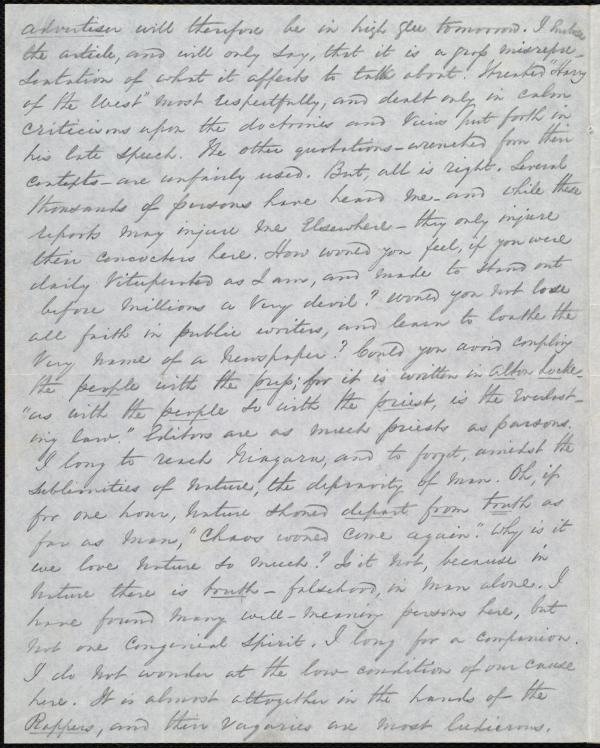 advertiser will therefore be in high glee tomorrow. I Enclose
the article, and will only say, that it is a gross misrepre-
sentation of what it affects to talk about. I treated "Harry
of the West" most respectfully, and dealt only in calm
criticisms upon the doctrines and views put forth in
his late speech. The other quotations - wrenched from their
contexts - are unfairly used. But, all is right. Several
thousands of persons have heard me - and while these
reports may injure me Elsewhere - they only injure
their concocters here. How would you feel, if you were
daily Vituperated as I am, and made to stand out
before Millions a Very devil? Would you not lose
all faith in public writers, and learn to loathe the
Very name of a Newspaper? Could you avoid coupling
the people with the press; for it is written in Alton Locke -
"as with the people so with the priest, is the Everlast-
ing law." Editors are as much priests as parsons.
I long to reach Niagara, and to forget, amidst the
sublimities of Nature, the depravity of Man. Oh, if
for one hour, Nature should depart from truth as
far as Man, "Chaos would come again." Why is it
we love Nature so much? Is it not, because in
Nature there is truth - falsehood, in Man alone. I
have found Many well-meaning persons here, but
not one Congenial Spirit. I long for a companion.
I do not wonder at the low condition of our cause
here. It is almost altogether in the hands of the
Rappers, and their Vagaries are most ludicrous.